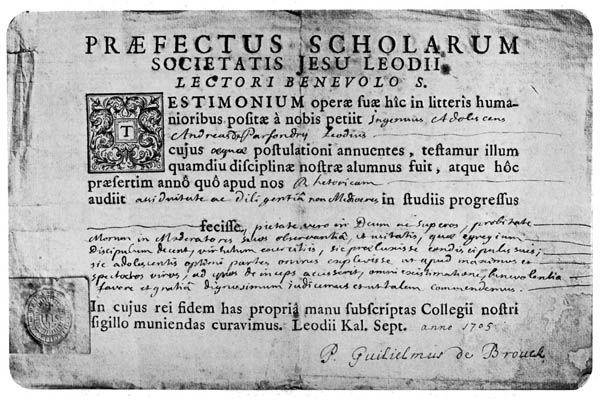 PRÆFECTUS SCHOLARUM
SOCIETATIS JESU LEODII
LECTORI BENEVOLO S.
TESTIMONIUM operæ suæ hîc in litteris huma-
nioribus positæ à nobis petiit Ingenuus Adolescens
Andreas de Parfondry Leodius
cujus æquæ postulationi annuentes, testamur illum
quamdiu disciplinæ nostræ alumnus fuit, atque hôc
præsertim annô quô apud nos Rhetoricam
audiit assiduitate ac diligentiâ non Mediocres in studiis progressus
fecisse, pietate vero in Deum ac superos, probitate
Morum in Moderatores suos observantiâ, et civitatis, quæ egregium
Discipulum decent, virtutum exercitiis, sic præluxisse condiscipulis suis,
sic adolescentis optimi partes omnes explevisse ut apud maximos et
spectatos viros, ad quos deinceps accesserit, omni existimatione, benevolentia
favore et gratiâ dignissimum judicemus et ut talem commendemus.
In cujus rei fidem has propriâ manu subscriptas Collegii nostri
sigillo muniendas curavimus. Leodii Kal. Sept. anno 1705
P. Guilielmus de Brouck